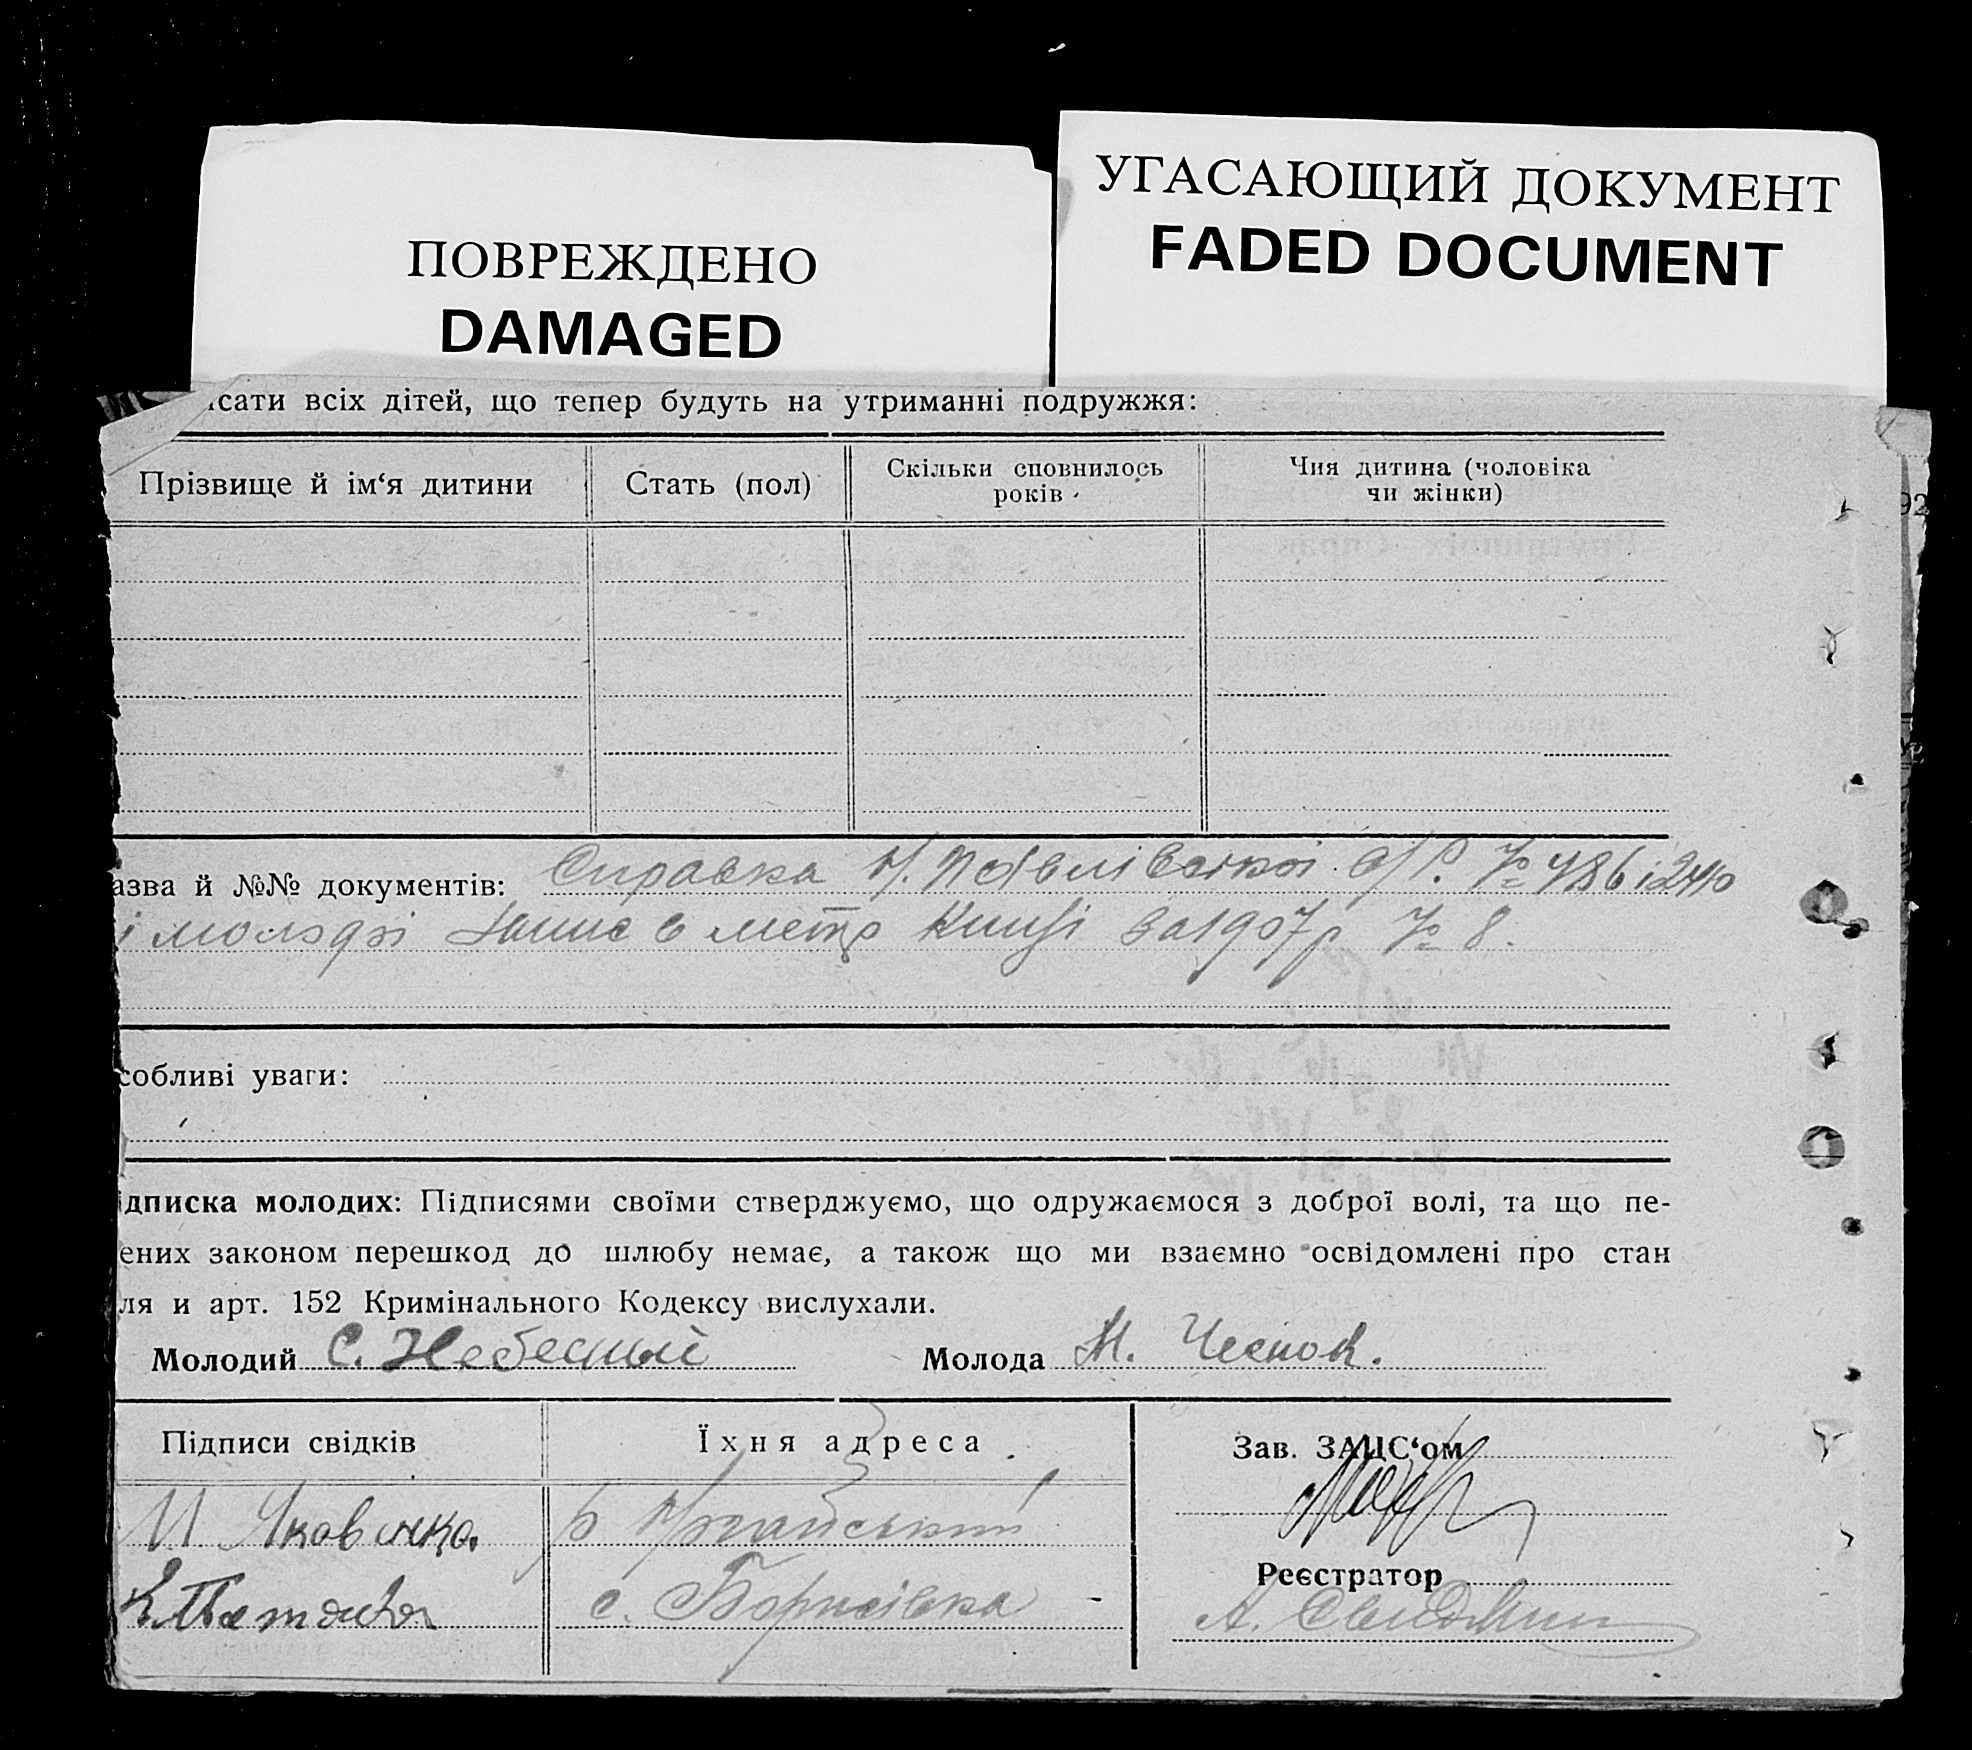 ПОВРЕЖДЕНО
DAMAGED
УГАСАЮЩИЙ ДОКУМЕНТ
FADED DOCUMENT
исати всіх дітей, що тепер будуть на утриманні подружжя:
Прізвище й ім‘я дитини
Стать (пол)
Скільки сповнилось
років
Чия дитина (чоловіка
чи жінки)
92
азва й №№ документів: Справка с/Р. № 486 і 240
і молодої в метр книзі за 1907 р № 8.
собливі уваги:
ідписка молодих: Підписями своїми стверджуємо, що одружаємося з доброї волі, та що пе-
ених законом перешкод до шлюбу немає, а також що ми взаємно освідомлені про стан
ля и арт. 152 Кримінального Кодексу вислухали.
Молодий С. Небесный Молода М. Чеснок.
Підписи свідків
Їхня адреса
Зав. ЗАЦС‘ом
И р
с. Борисівка
Реєстратор
А.